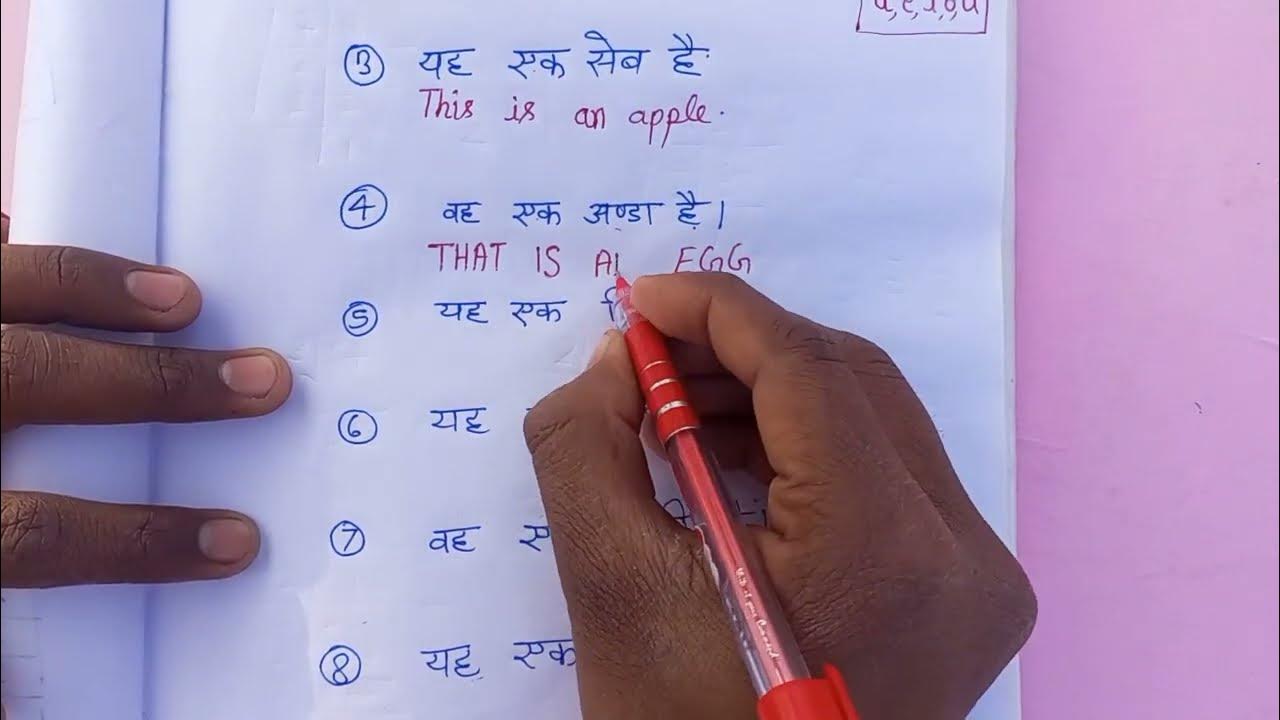 a, e, i, o, u
③ यह एक सेब है
This is an apple.
④ वह एक अण्डा है।
THAT IS AN EGG
⑤ यह एक
⑥ यह
⑦ वह
⑧ यह एक